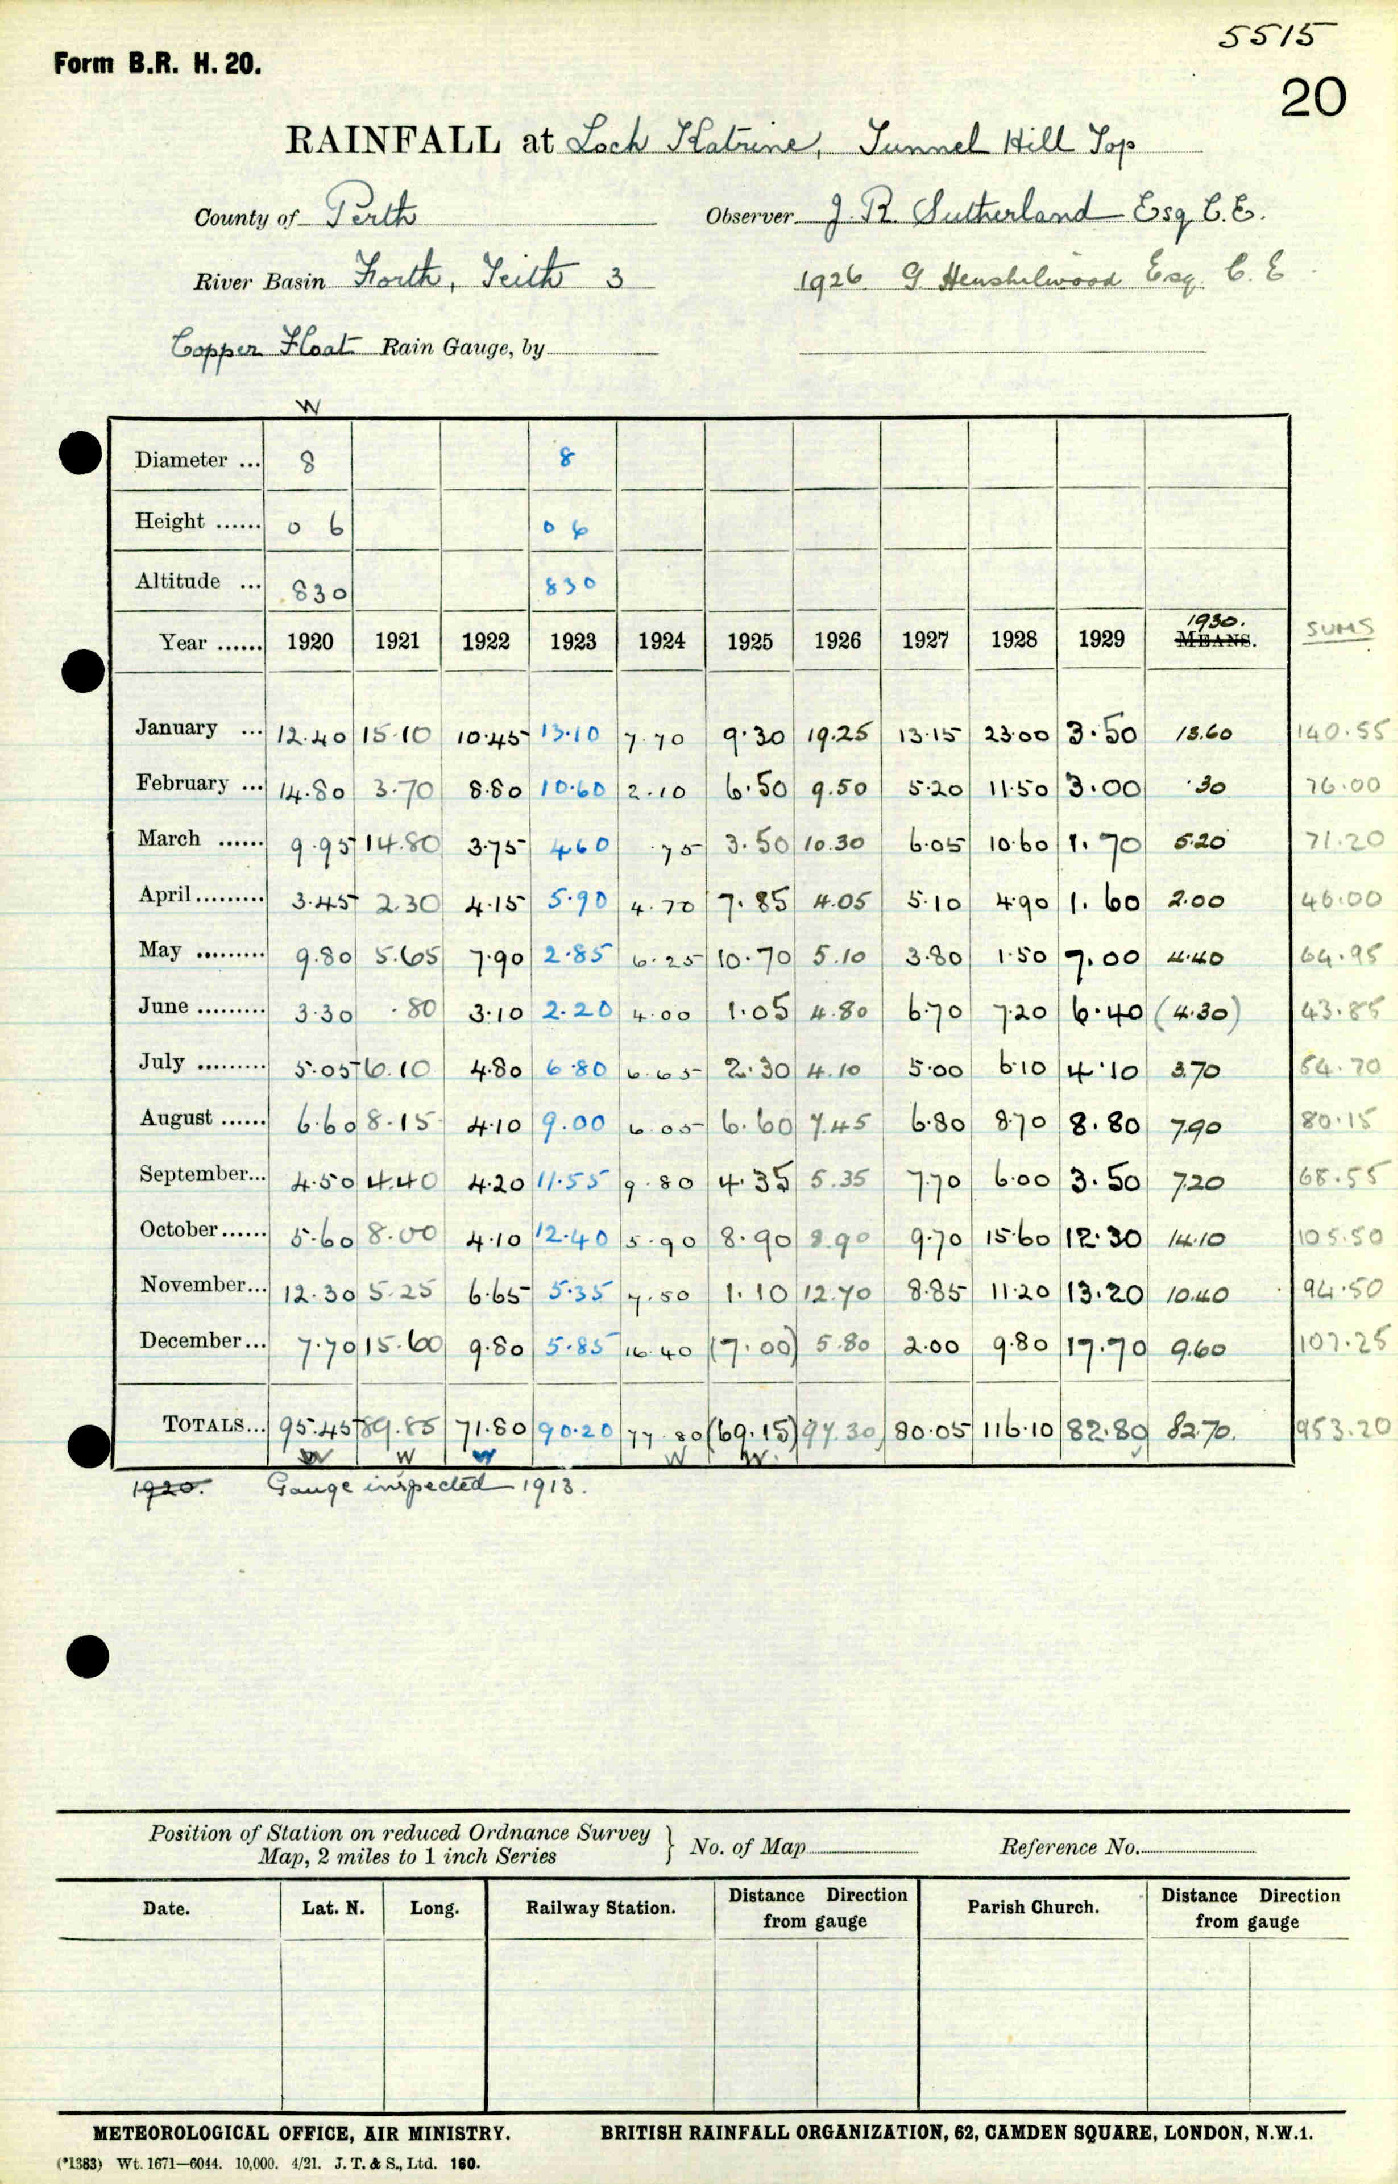 5515
Form B.R. H. 20.
20
RAINFALL at Loch Katrine, Tunnel Hill Top
County of Perth Observer J. R. Sutherland Esq C.E.
River Basin Forth, Teith 3 1926 G Henshilwood Esq. C. E
Copper Float Rain Gauge, by
W
Diameter ... 8 8
Height ...... 0 6 0 6
Altitude ... 830 830
Year ...... 1920 1921 1922 1923 1924 1925 1926 1927 1928 1929 1930. MEANS. SUMS
January ... 12.40 15.10 10.45 13.10 7.70 9.30 19.25 13.15 23.00 3.50 13.60 140.55
February ... 14.80 3.70 8.80 10.60 2.10 6.50 9.50 5.20 11.50 3.00 .30 76.00
March ...... 9.95 14.80 3.75 4.60 .75 3.50 10.30 6.05 10.60 1.70 5.20 71.20
April......... 3.45 2.30 4.15 5.90 4.70 7.85 4.05 5.10 4.90 1.60 2.00 46.00
May ......... 9.80 5.65 7.90 2.85 6.25 10.70 5.10 3.80 1.50 7.00 4.40 64.95
June ......... 3.30 .80 3.10 2.20 4.00 1.05 4.80 6.70 7.20 6.40 (4.30) 43.85
July ......... 5.05 6.10 4.80 6.80 6.65 2.30 4.10 5.00 6.10 4.10 3.70 54.70
August ...... 6.60 8.15 4.10 9.00 6.05 6.60 7.45 6.80 8.70 8.80 7.90 80.15
September... 4.50 4.40 4.20 11.55 9.80 4.35 5.35 7.70 6.00 3.50 7.20 68.55
October...... 5.60 8.00 4.10 12.40 5.90 8.90 8.90 9.70 15.60 12.30 14.10 105.50
November... 12.30 5.25 6.65 5.35 7.50 1.10 12.70 8.85 11.20 13.20 10.40 94.50
December... 7.70 15.60 9.80 5.85 16.40 (7.00) 5.80 2.00 9.80 17.70 9.60 107.25
TOTALS... 95.45 89.85 71.80 90.20 77.80 (69.15) 97.30 80.05 116.10 82.80 82.70. 953.20
W W W W W.
1920. Gauge inspected 1913.
Position of Station on reduced Ordnance Survey
Map, 2 miles to 1 inch Series } No. of Map Reference No.
Date. Lat. N. Long. Railway Station. Distance Direction from gauge Parish Church. Distance Direction from gauge
METEOROLOGICAL OFFICE, AIR MINISTRY. BRITISH RAINFALL ORGANIZATION, 62, CAMDEN SQUARE, LONDON, N.W.1.
(*1383) Wt. 1671—6044. 10,000. 4/21. J. T. & S., Ltd. 160.